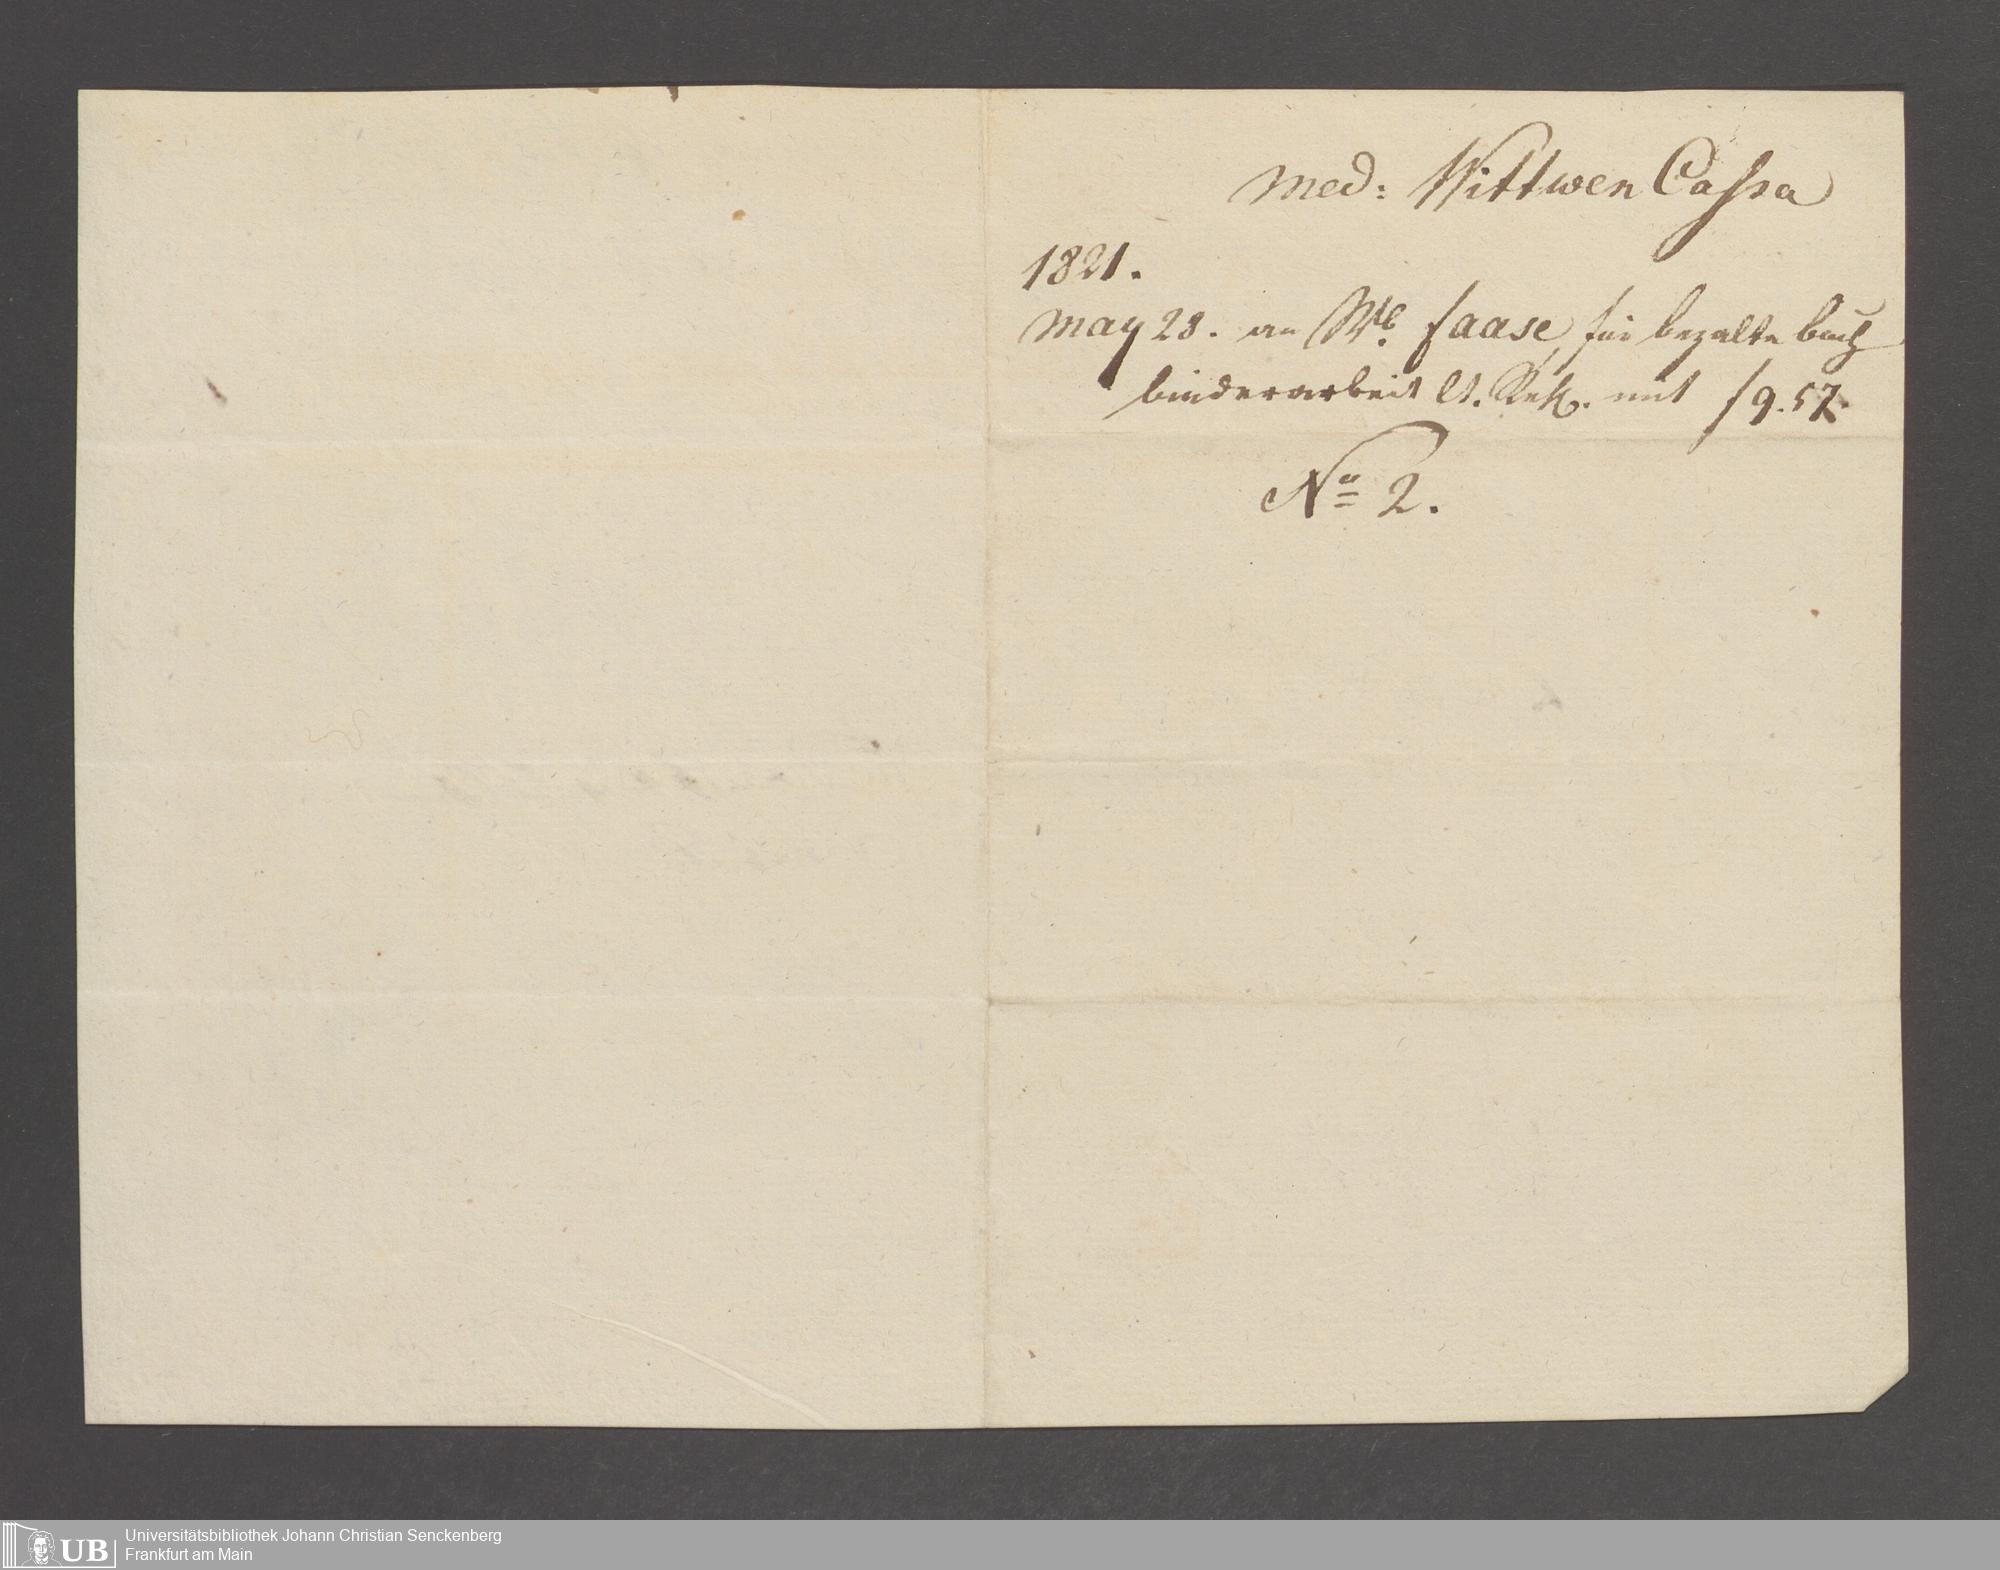 Med: Wittwen Cassa
1821.
May 28. an Wb. Haase, für bezalte buch
binderarbeit lt. Rech. mit f 9.57.
No 2.
UB
Universitätsbibliothek Johann Christian Senckenberg
Frankfurt am Main